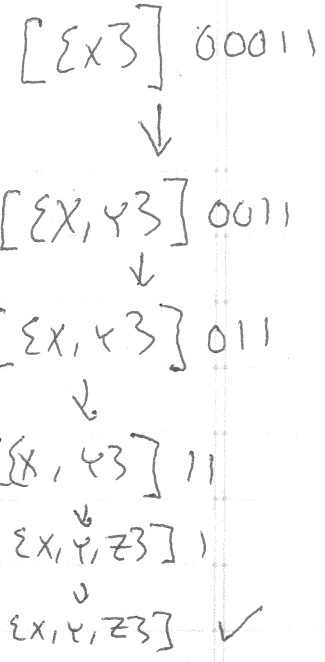 [{X}] 00011
↓
[{X, Y}] 0011
↓
[{X, Y}] 011
↓
[{X, Y}] 11
↓
{X, Y, Z}] 1
↓
{X, Y, Z}] ✓